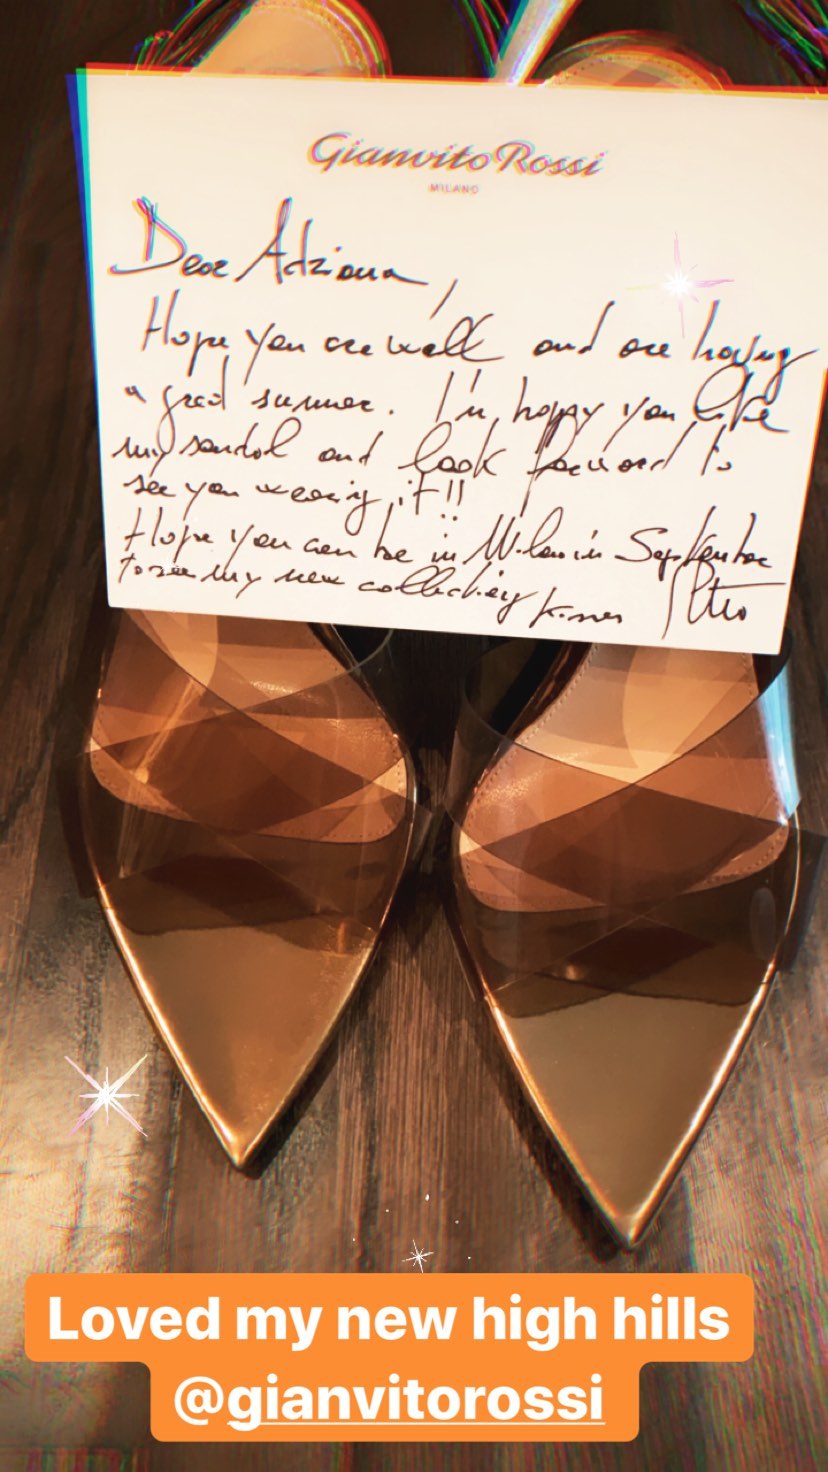 Gianvito Rossi
MILANO
Dear Adriana,
Hope you are well and are having
a great summer. I'm happy you like
my sandal and look forward to
see you wearing it!!
Hope you can be in Milan in September
to see my new collection
Loved my new high hills
@gianvitorossi